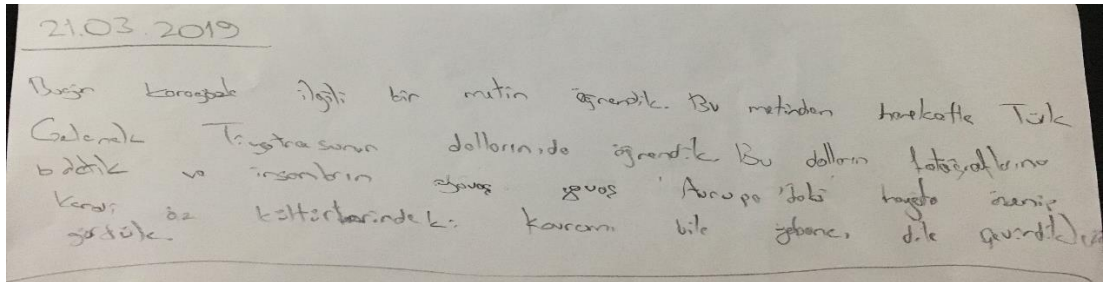 21.03.2019
Bugün karagözle ilgili bir metin öğrendik. Bu metinden harekatle Türk
Gelenek Tiyatrosunun dallarını,da öğrendik. Bu dalların fotoğraflarına
baktık ve insanların yavaş Avrupa'daki hayata özenip
Kendi öz kültürlerindeki kavramı bile yabancı dile çevirdiklerini
gördük.